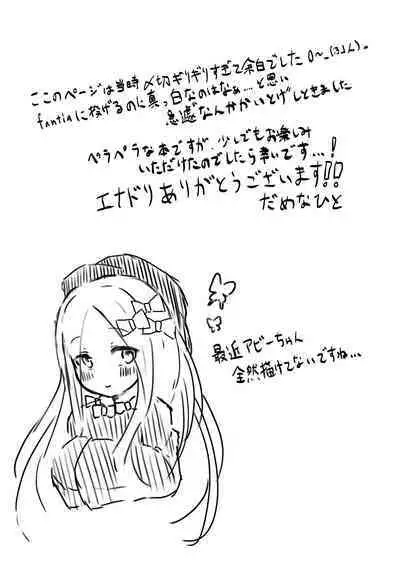 ここのページは当時〆切ギリギリすぎて余白でした
fantiaに投げるのに真っ白なのはなぁ…と思い
急遽なんかかいとげしときました
ペラペラな本ですが、少しでもお楽しみ
いただけたのでしたら幸いです…!
エナドリありがとうございます!!
だめなひと
最近アビーちゃん
全然描けてないですね…